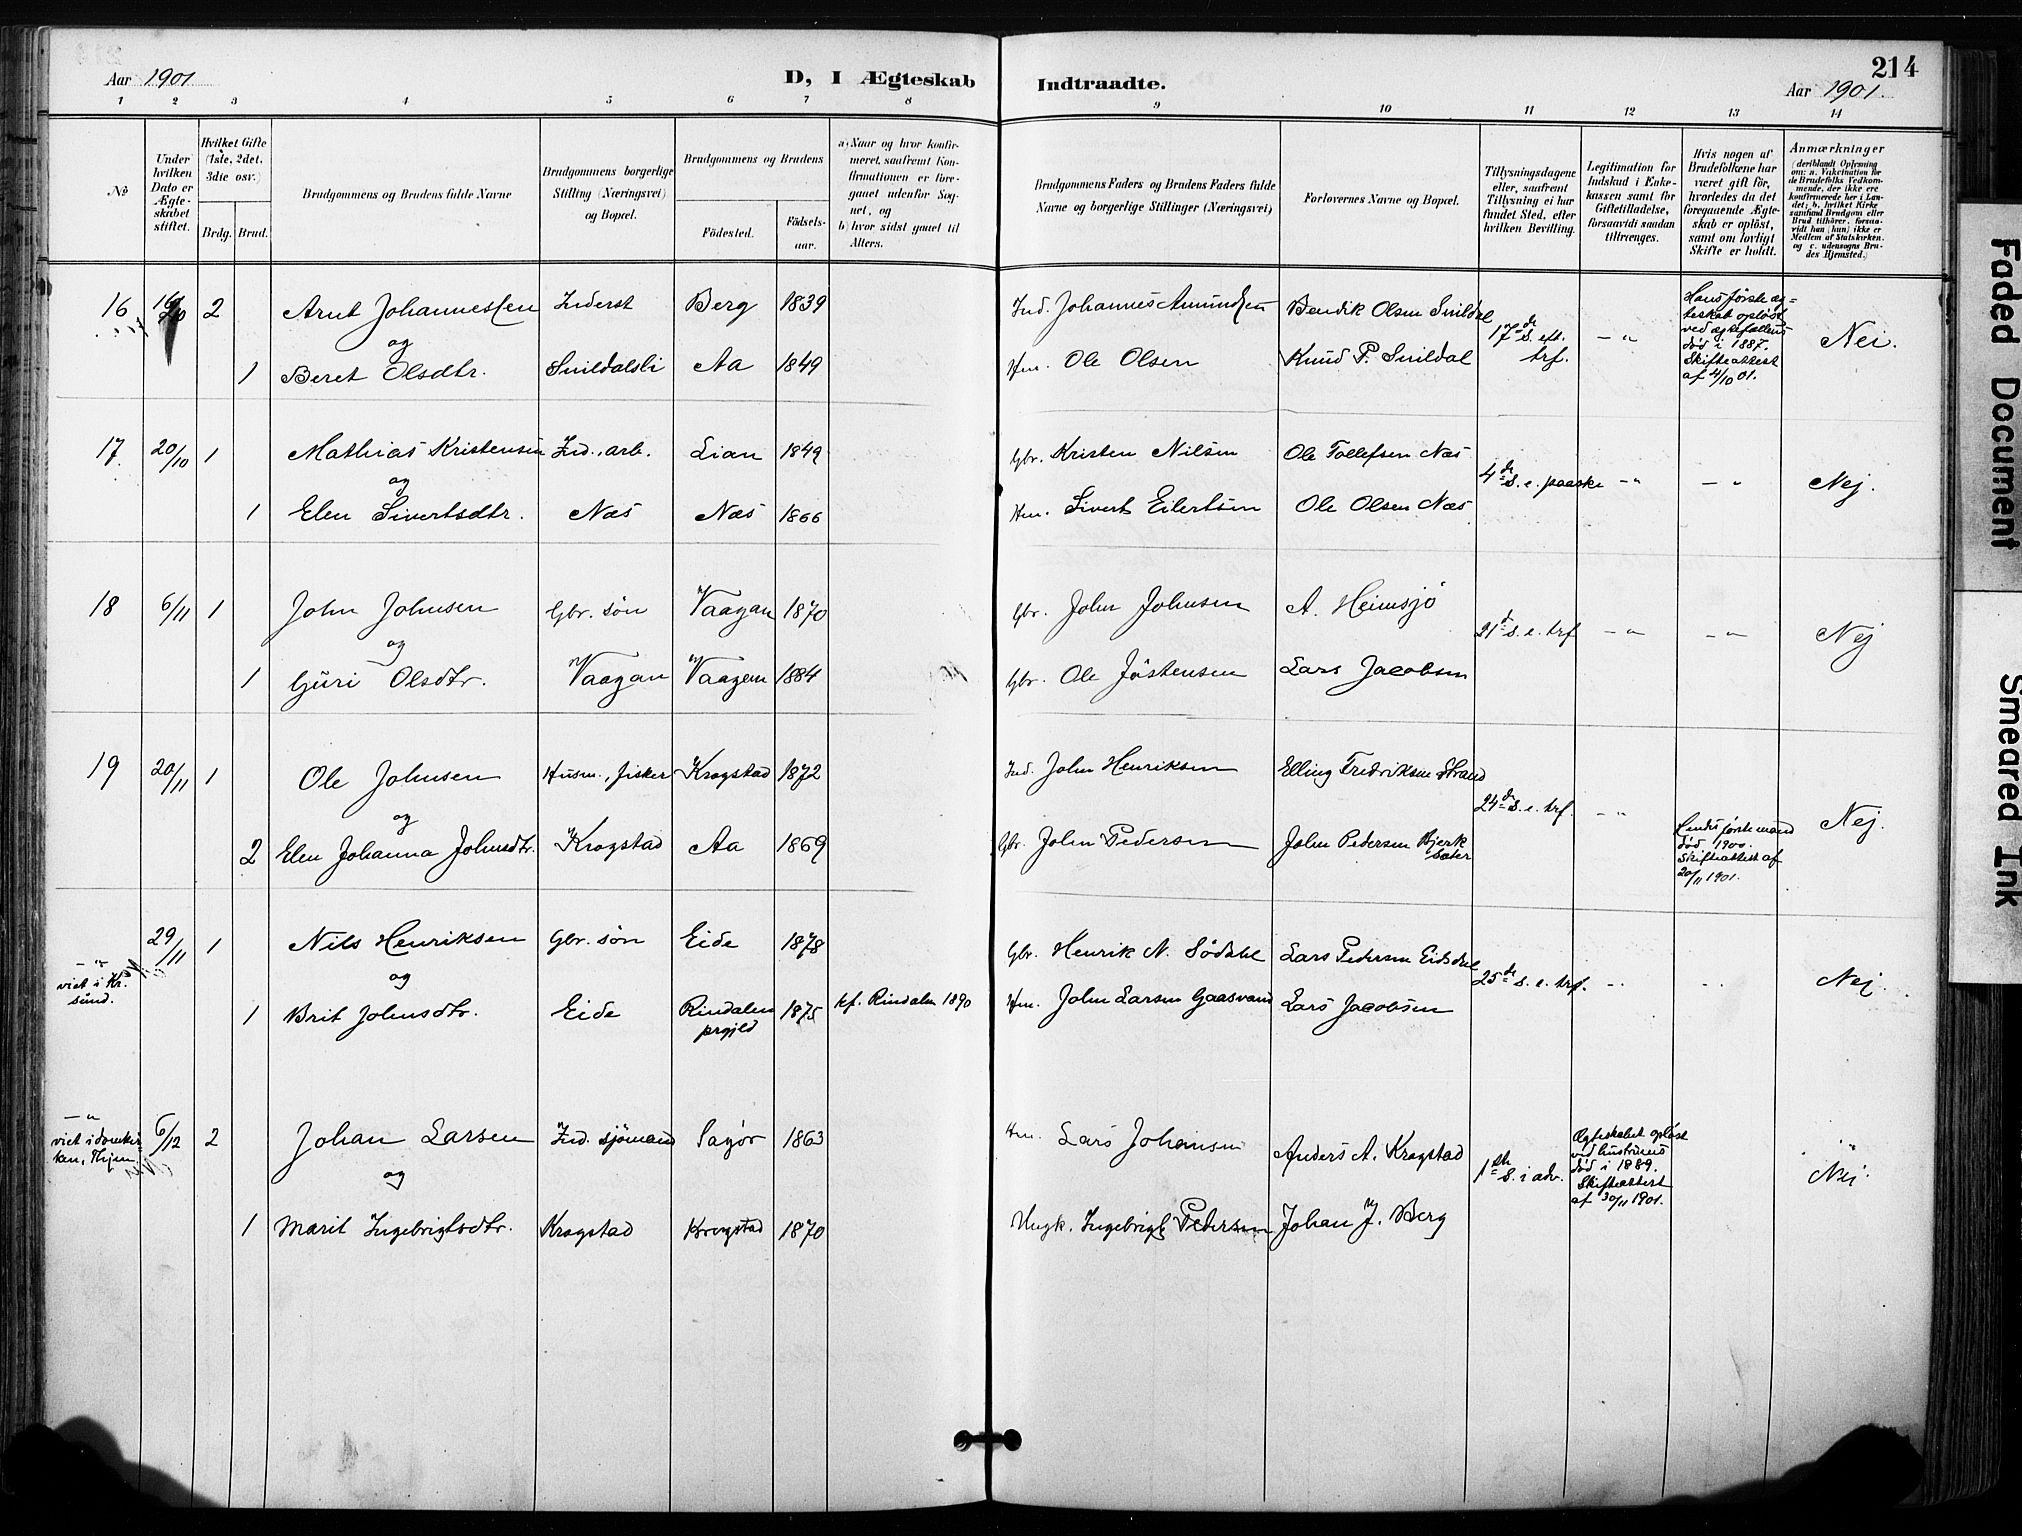 Aar 1901. D, I Ægteskab Indtraadte. 214
Aar 1901.
1 2 3 4 5 6 7 8 9 10 11 12 13 14
No
Under hvilken Dato er Ægteskabet stiftet.
Hvilket Gifte (1ste, 2det, 3die osv.)
Brdg. Brud.
Brudgommens og Brudens fulde Navne
Brudgommens borgerlige Stilling (Næringsvei) og Bopæl.
Brudgommens og Brudens
Födested. Födsels-aar.
a) Naar og hvor konfirmeret, saafremt Konfirmationen er foregaaet udenfor Sognet, og
b) hvor sidst gaaet til Alters.
Brudgommens Faders og Brudens Faders fulde Navne og borgerlige Stillinger (Næringsvei)
Forlovernes Navne og Bopæl.
Tillysningsdagene eller, saafremt Tillysning ei har fundet Sted, efter hvilken Bevilling.
Legitimation for Indskud i Enkekassen samt for Giftetilladelse, forsaavidt saadan tiltrænges.
Hvis nogen af Brudefolkene har været gift för, hvorledes da det foregaaende Ægteskab er oplöst, samt om lovligt Skifte er holdt.
Anmærkninger (deriblandt Oplysning om: a. Vakcination for de Brudefolks Vedkommende, der ikke ere konfirmerede her i Landet; b. hvilket Kirkesamfund Brudgom eller Brud tilhörer, forsaavidt han (hun) ikke er Medlem af Statskirken, og c. udensogns Brudes Hjemsted.)
16 2 Arnt Johannessen Inderst Berg 1839 Ind. Johannes Amundsen Bendik Olsen Snildal 17de S. eft. trf. — " Hans første ægteskab opløst ved ægtefællens død i 1887. Skifteattest af 4/10 01. Nei.
og
1 Beret Olsdtr. Snildalsli Aa 1849 Hm. Ole Olsen Knud P. Snildal
17. 20/10 1 Mathias Kristensen Ind., arb. Lian 1849 Gbr. Kristen Nilsen Ole Tollefsen Næs 4de S. e. paaske — " — " Nej.
og
1 Elen Sivertsdtr. Næs Næs 1866 Hm. Sivert Eilertsen Ole Olsen Næs
18 6/11 1 John Johnsen Gbr. søn Vaagan 1870 Gbr. John Johnsen A. Heimsjö 21d S. e. trf — " — " Nej
og
1 Guri Olsdtr. Vaagan Vaagan 1884 Gbr. Ole Jöstensen Lars Jacobsen
19 20/11 1 Ole Johnsen Husm., fisker Krogstad 1872 Ind. John Henriksen Elling Fredriksen Strand 24de S. e. trf. — " Hendes første mand død 1900. Skifteattest af 20/11 1901. Nej.
og
2 Elen Johanna Johnsdtr. Krogstad Aa 1869 Gbr. John Pedersen John Pedersen Bjerksæter
— " viet i Kr.sund. 29/11 1 Nils Henriksen Gbr. søn Eide 1878 Gbr. Henrik N. Södahl Lars Pedersen Eidsdal 25de S. e. trf. Nej
og
1 Brit Johnsdtr. Eide Rindalen prgjld 1875 kf. Rindalen 1890 Hm. John Larsen Gaasvand Lars Jacobsen
— " viet i domkirken, Thjem 6/12 2 Johan Larsen Ind. sjömand Sagör 1863 Hm. Lars Johansen Anders A. Krogstad 1ste S. i adv. Ægteskabet opløst ved hustruens død i 1889. Skifteattest af 30/11 1901. Nej.
og
1 Marit Ingebrigtsdtr. Krogstad Krogstad 1870 Ungk. Ingebrigt Pedersen Johan J. Berg
Faded Document
Smeared Ink